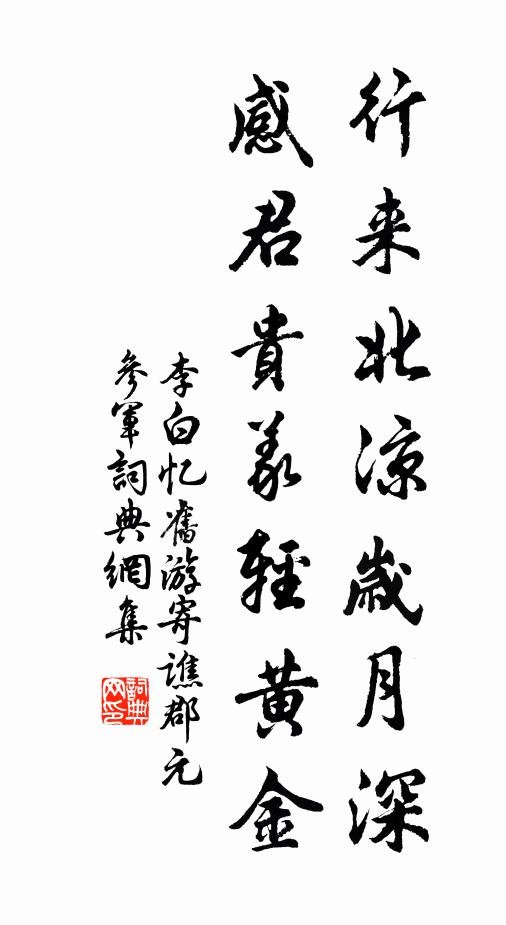 行来北凉歲月深
感君貴義輕黄金
李白忆舊游寄譙郡元
參軍詞典網集
詞典
网印